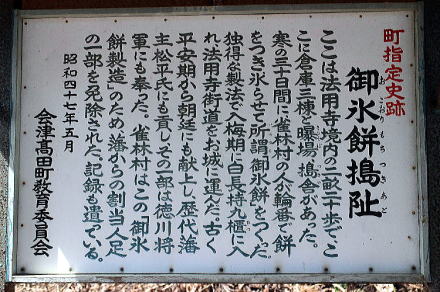 町指定史跡
御氷餅搗阯
おこおりもちつきあと
ここは法用寺境内の二畝二十歩でこ
こに倉庫三棟と曝場、搗舎があった。
寒の三十日間に雀林村の人が輪番で餅
をつき氷らせて所謂御氷餅をつくった。
独得な製法で入梅期に白長持九櫃に入
れ法用寺街道をお城に運んだ。古く
平安期から朝廷にも献上し、歴代藩
主松平氏にも貢しその一部は徳川将
軍にも奉った。雀林村はこの「御氷
餅製造」のため藩からの割当人足
の一部を免除された。記録も遺っている。
昭和四十七年五月
会津高田町教育委員会